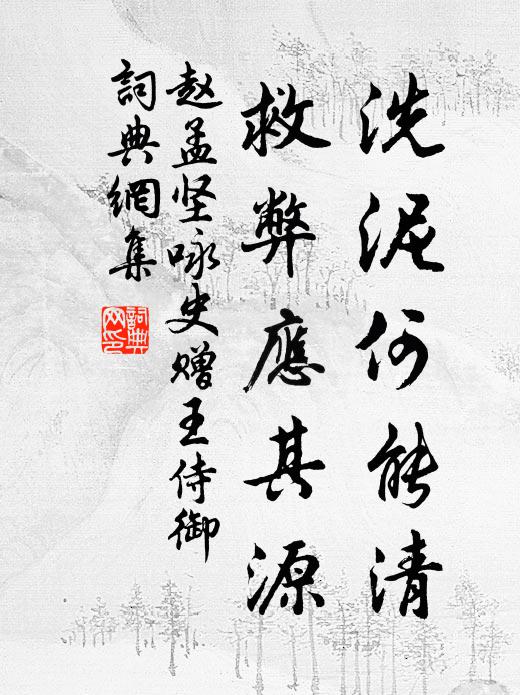 洗泥何能清
救弊應其源
赵孟坚咏史赠王侍御
詞典網集
詞典网印